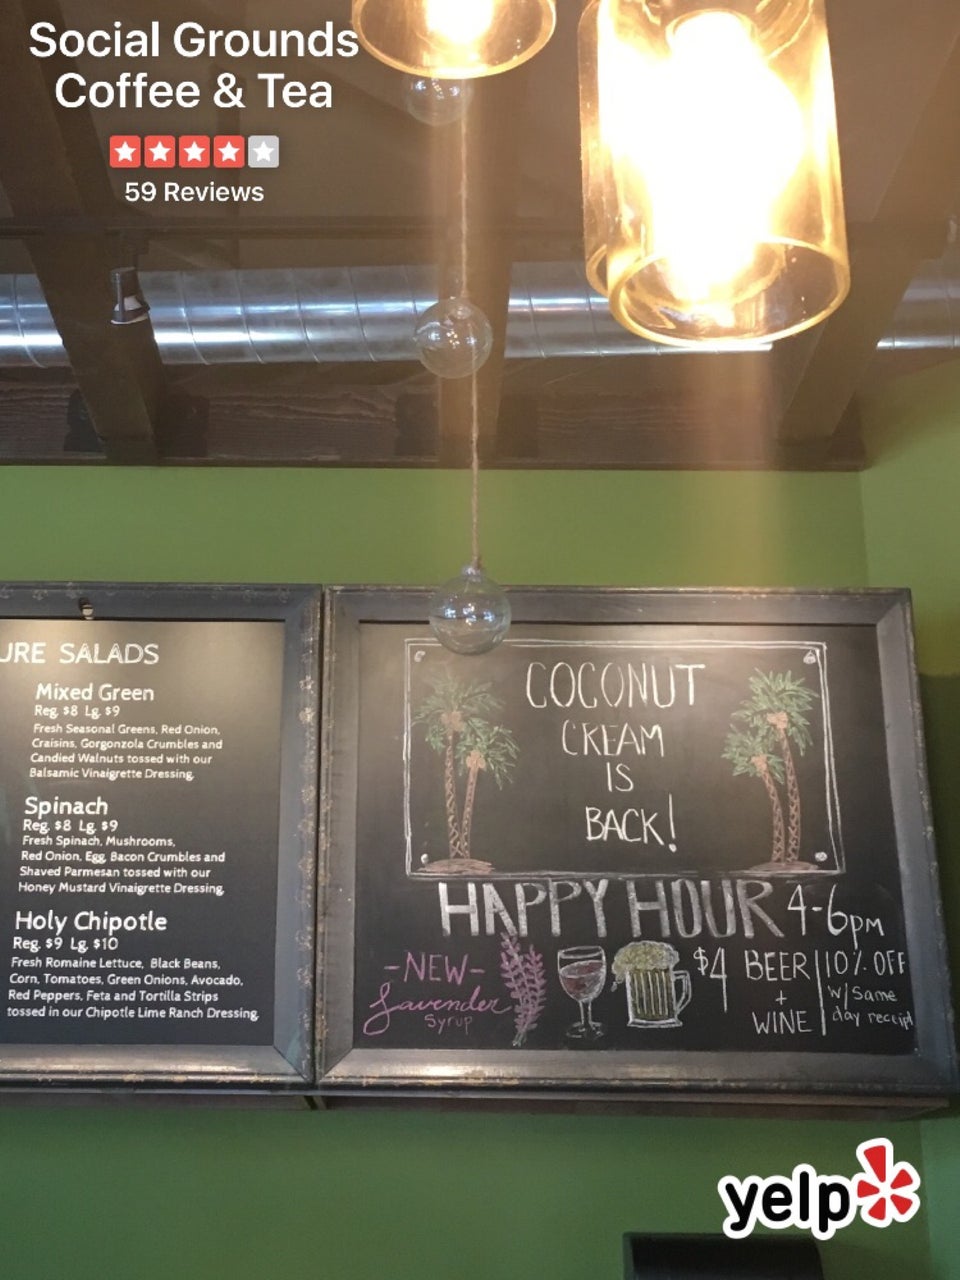 Social Grounds
Coffee & Tea
59 Reviews
URE SALADS
Mixed Green
Reg. $8 Lg. $9
Fresh Seasonal Greens, Red Onion,
Craisins, Gorgonzola Crumbles and
Candied Walnuts tossed with our
Balsamic Vinaigrette Dressing.
Spinach
Reg. $8 Lg. $9
Fresh Spinach, Mushrooms,
Red Onion, Egg, Bacon Crumbles and
Shaved Parmesan tossed with our
Honey Mustard Vinaigrette Dressing.
Holy Chipotle
Reg. $9 Lg. $10
Fresh Romaine Lettuce, Black Beans,
Corn, Tomatoes, Green Onions, Avocado,
Red Peppers, Feta and Tortilla Strips
tossed in our Chipotle Lime Ranch Dressing.
COCONUT
CREAM
IS
BACK!
HAPPY HOUR 4-6pm
-NEW-
Lavender
Syrup
$4 BEER
+
WINE
10% OFF
w/same
day receipt
yelp